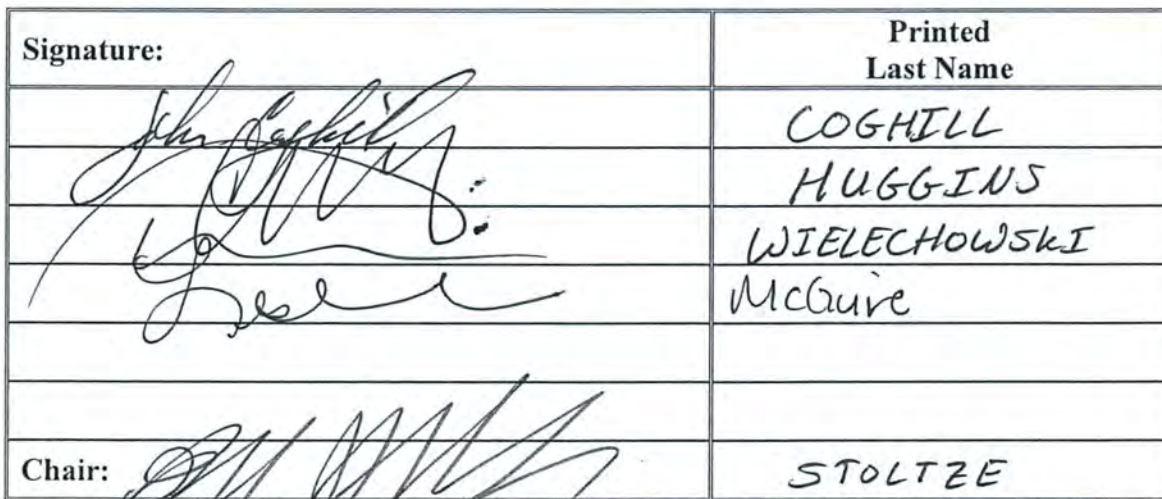 Signature: Printed
Last Name
John Coghill COGHILL
HUGGINS
WIELECHOWSKI
McGuire
Chair: STOLTZE